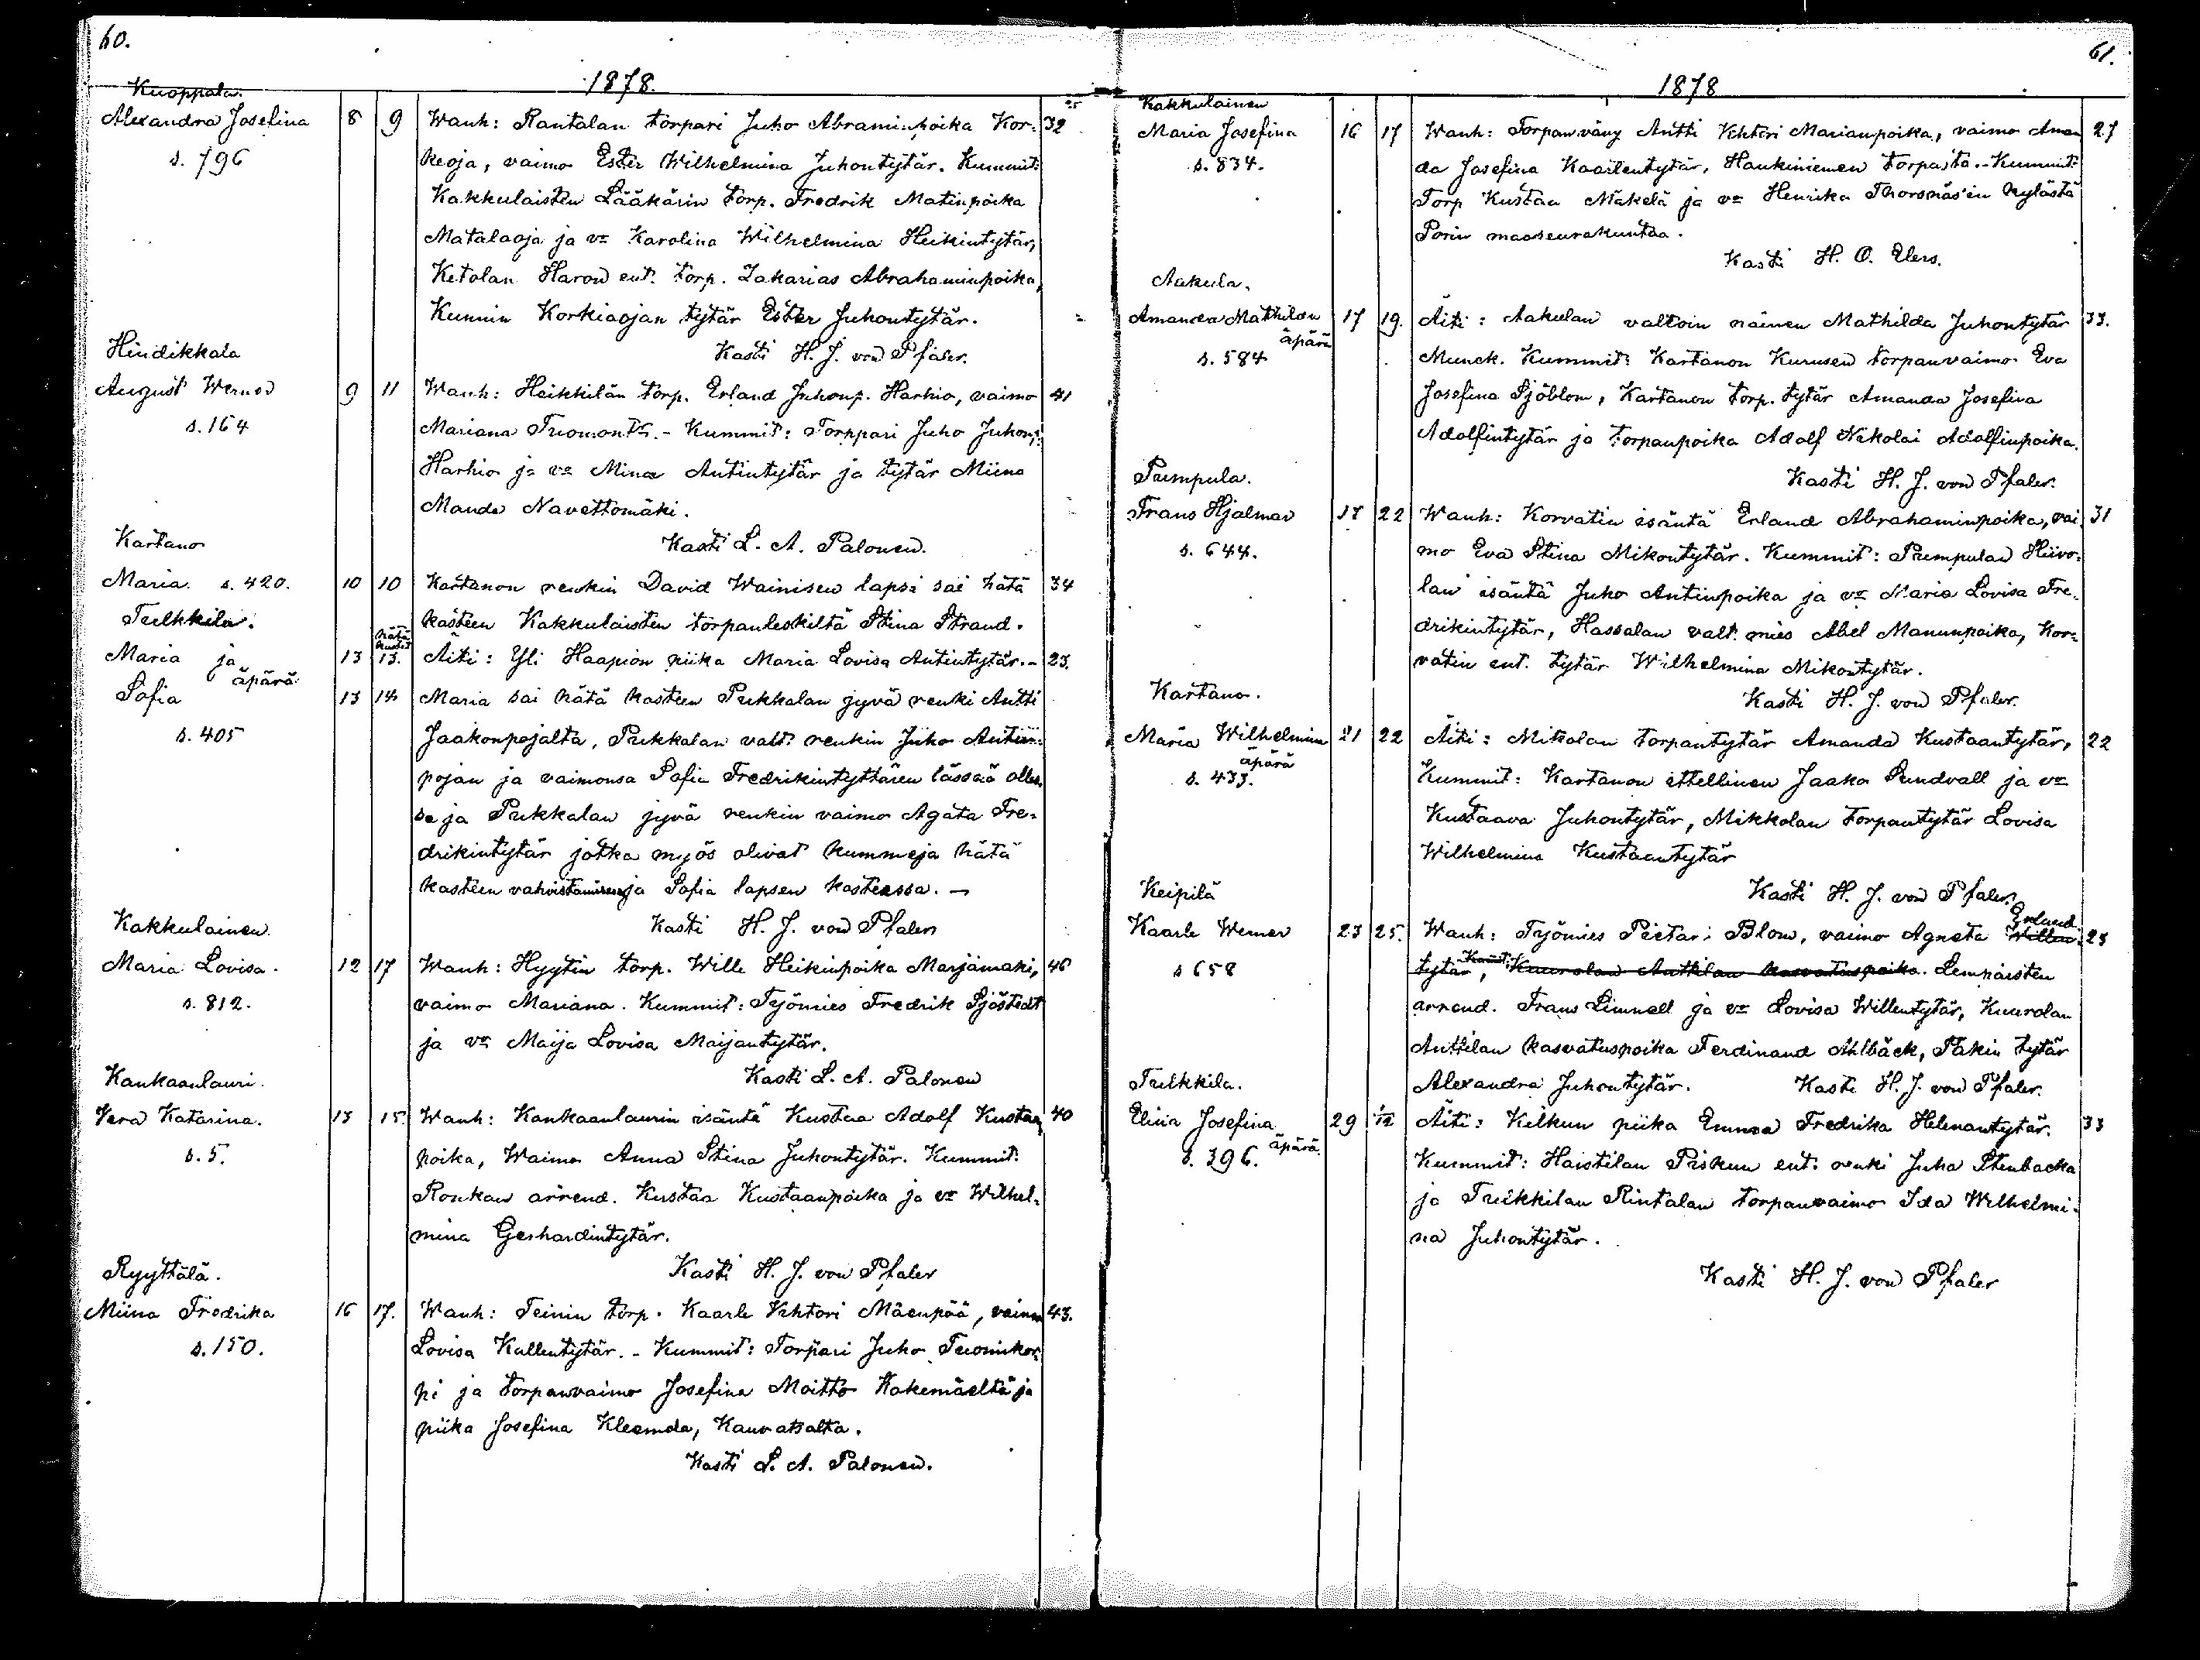 60.
1878.
Kuoppala.
Alexandra Josefina 8 9 Wanh: Rantalan torpari Juho Abraminpoika Kor- 32
s. 796 keoja, vaimo Ester Wilhelmina Juhontytär. Kummit:
Kakkulaisten Lääkärin torp. Fredrik Matinpoika
Mataloja ja vo Karolina Wilhelmina Heikintytär,
Ketolan Haron ent. torp. Zakarias Abrahaminpoika,
Kunnin Korkiaojan tytär Ester Juhontytär.
Hindikkala Kasti H. J. von Pfaler.
August Werner 9 11 Wanh: Heikkilän torp. Erland Juhonp. Harhio, vaimo 41
s. 164 Mariana Tuomontr. - Kummit: Torppari Juho Juhonp.
Harhio ja vo Mina Antintytär ja tytär Miina
Manda Navettomäki.
Kartano Kasti L. A. Palonen.
Maria. s. 420. 10 10 Kartanon renkin David Wainisen lapsi sai hätä 34
Tulkkila. kasteen Kakkulaisten torpanleskiltä Stina Strand.
hätä kaste
Maria ja 13 13. Äiti: Yli Haapion piika Maria Lovisa Antintytär. - 23.
äpärä
Sofia 13 14 Maria sai hätä kasteen Pukkalan jyvä renki Antti
s. 405 Jaakonpojalta, Pukkalan valt. renkin Juho Antin-
pojan ja vaimonsa Sofia Fredrikintyttären lässää olles-
sa ja Pukkalan jyvä renkin vaimo Agata Fre-
drikintytär jotka myös olivat kummeja hätä
kasteen vahvistamisessa ja Sofia lapsen kasteessa. -
Kakkulainen. Kasti H. J. von Pfaler
Maria Lovisa. 12 17 Wanh: Hyytin torp. Wille Heikinpoika Marjamäki, 46
s. 812. vaimo Mariana. Kummit: Työmies Fredrik Sjöstedt
ja vo Maija Lovisa Maijantytär.
Kankaanlauri. Kasti L. A. Palonen
Vera Katarina. 13 15. Wanh: Kankaanlaurin isäntä Kustaa Adolf Kustaan 40
s. 5. poika, Waimo Anna Stina Juhontytär. Kummit:
Ronkan arrend. Kustaa Kustaanpoika ja vo Wilhel-
mina Gerhardintytär.
Ryyttälä. Kasti H. J. von Pfaler
Miina Fredrika 16 17. Wanh: Teinin torp. Kaarle Vihtori Mäenpää, vaimo 43.
s. 150. Lovisa Kallentytär. - Kummit: Torpari Juho Tuomikor-
pi ja torpanvaimo Josefina Moitto Kokemäeltä ja
piika Josefina Kleemola, Kauvatsalta.
Kasti L. A. Palonen.
61.
1878
Kakkulainen
Maria Josefina 16 17 Wanh: Torpanvävy Antti Vihtori Marianpoika, vaimo Aman 27
s. 834. da Josefina Kaarlentytär, Haukiniemen torpasta. - Kummit:
Torp Kustaa Mäkelä ja vo Henrika Thorsnäs'in kylästä
Porin maaseurakuntaa.
Kasti H. O. Elers.
Aakula.
Amanda Mathilda 17 19. Äiti: Aakulan valtoin nainen Mathilda Juhontytär 33.
äpärä
s. 584 Munck. Kummit: Kartanon Kurusen torpanvaimo Eva
Josefina Sjöblom, Kartanon torp. tytär Amanda Josefina
Adolfintytär ja torpanpoika Adolf Nikolai Adolfinpoika.
Pumpula. Kasti H. J. von Pfaler.
Frans Hjalmar 17 22 Wanh: Korvatin isäntä Erland Abrahaminpoika, vai 31
s. 644. mo Eva Stina Mikontytär. Kummit: Pumpulan Hiivo-
lan isäntä Juho Antinpoika ja vo Maria Lovisa Fre-
drikintytär, Hassalan valt. mies Abel Manunpoika, Kor-
vatin ent. tytär Wilhelmina Mikontytär.
Kartano. Kasti H. J. von Pfaler.
Maria Wilhelmina 21 22 Äiti: Mikolan torpantytär Amanda Kustaantytär, 22
äpärä
s. 433. Kummit: Kartanon ittellinen Jaako Sundvall ja vo
Kustaava Juhontytär, Mikkolan torpantytär Lovisa
Wilhelmina Kustaantytär
Keipilä Kasti H. J. von Pfaler.
Erland
Kaarle Werner 23 25. Wanh: Työmies Pietari Blom, vaimo Agneta Willen 25
s 658 tytär, Kuurolan Anttilan kasvatuspoika. Lempäisten
arrend. Frans Linnell ja vo Lovisa Willentytär, Kuurolan
Anttilan kasvatuspoika Ferdinand Ahlbäck, Pakin tytär
Tulkkila. Alexandra Juhontytär. Kasti H. J. von Pfaler.
Elina Josefina 29 1/12 Äiti: Kilkun piika Emma Fredrika Helenantytär. 33
äpärä.
s. 396. Kummit: Haistilan Piskun ent. renki Juha Stenbacka
ja Tulkkilan Rintalan torpanvaimo Ida Wilhelmi-
na Juhontytär.
Kasti H. J. von Pfaler